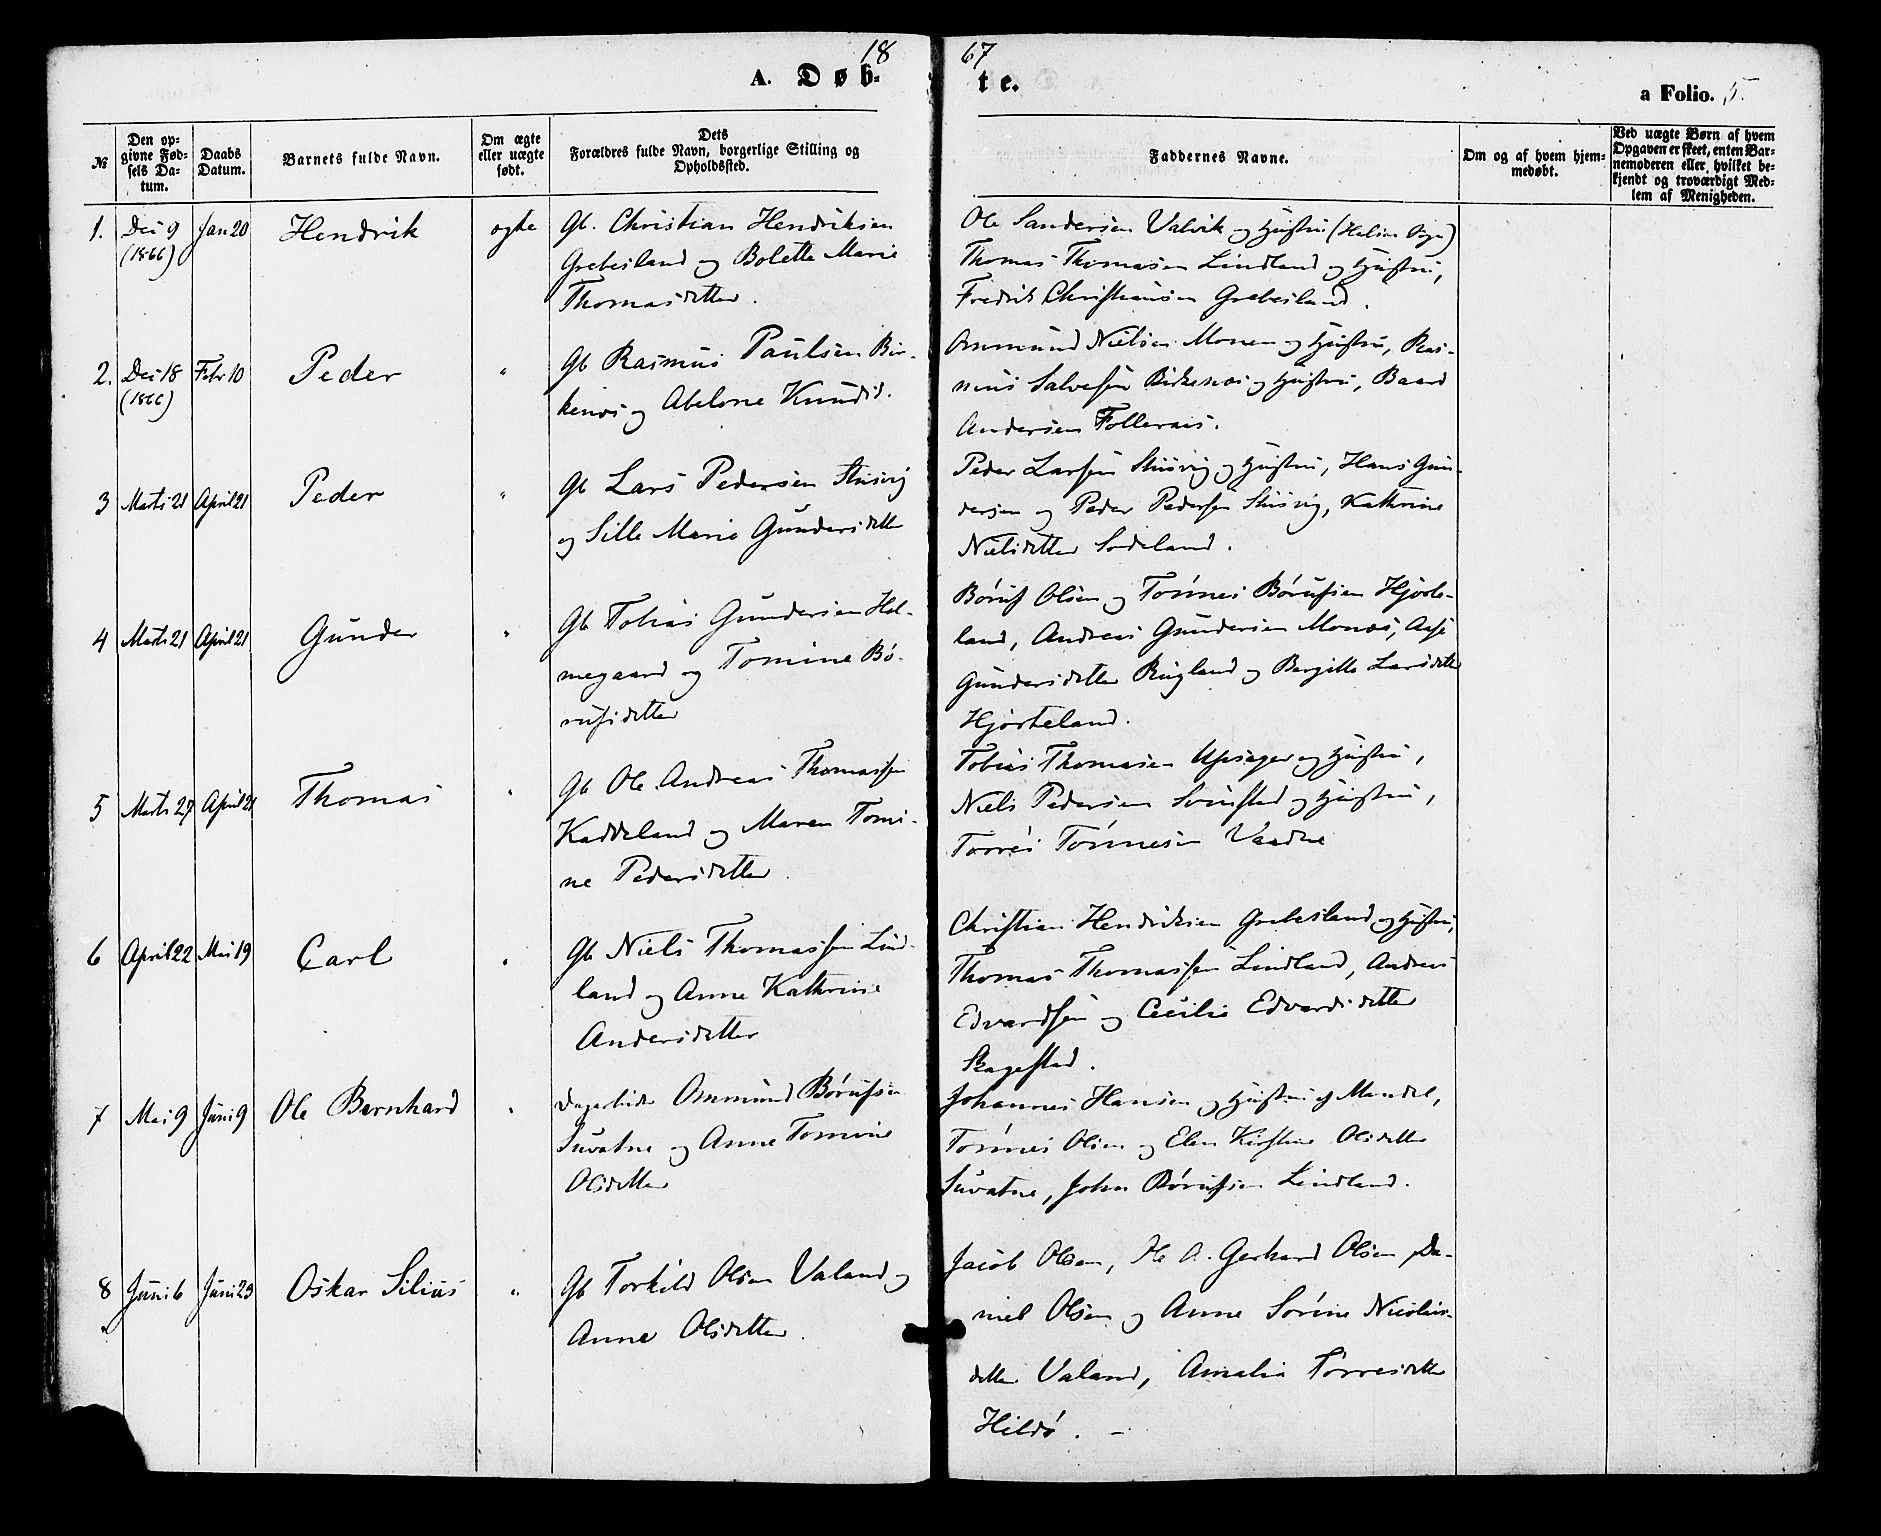 1867
A. Døb-
te.
a Folio. 5.
№
Den op-
givne Fød-
sels Da-
tum.
Daabs
Datum.
Barnets fulde Navn.
Om ægte
eller uægte
født.
Dets
Forældres fulde Navn, borgerlige Stilling og
Opholdssted.
Faddernes Navne.
Om og af hvem hjem-
medøbt.
Ved uægte Børn af hvem
Opgaven er skeet, enten Bar-
nemoderen eller hvilket be-
kjendt og troværdigt Med-
lem af Menigheden.
1. Dec 9 Jan 20 Hendrik ægte Gb. Christian Hendriksen
(1866) Grebesland og Bolette Marie
Thomasdatter.
Ole Sandersen Valvik og Hustru (Halse Sogn)
Thomas Thomasen Lindland og Hustru,
Fredrik Christiansen Grebesland.
2. Dec 18 Febr 10 Peder " Gb Rasmus Paulsen Bir-
(1866) kenæs og Abelone Knudsd.
Ommund Nielsen Monen og Hustru, Ras-
mus Salvesen Birkenæs og Hustru, Baard
Andersen Folleraas.
3 Marts 21 April 21 Peder " Gb Lars Pedersen Stusvig
og Sille Marie Gundersdatter
Peder Larsen Stusvig og Hustru, Hans Gun-
dersen og Peder Pedersen Stusvig, Kathrine
Nielsdatter Sodeland.
4 Marts 21 April 21 Gunder " Gb Tobias Gundersen Hol-
megaard og Tomine Bø-
rufsdatter
Børuf Olsen og Tønnes Børufsen Hjorte-
land, Andreas Gundersen Monæs, Aase
Gundersdatter Rugland og Bergitte Larsdatter
Hjorteland.
5 Marts 27 April 21 Thomas " Gb Ole Andreas Thomassen
Kaddeland og Maren Tomi-
ne Pedersdatter.
Tobias Thomasen Upsager og Hustru,
Niels Pedersen og Hustru,
Torres Tønnesen Vaadne
6 April 22 Mai 19 Carl " Gb Niels Thomassen Lind-
land og Anne Kathrine
Andersdatter
Christian Hendriksen Grebesland og Hustru,
Thomas Thomassen Lindland, Andreas
Edvardsen og Cecilie Edvardsdatter
Skagestad.
7 Mai 9 Juni 9 Ole Bernhard " Dagarbeider Ommund Børufsen
Suvatne og Anne Tomine
Olsdatter
Johannes Hansen og Hustru af Mandal,
Tønnes Olsen og Elen Kirstine Olsdatter
Suvatne, John Børufsen Lindland.
8 Juni 6 Juni 23 Oskar Silius " Gb Torkild Olsen Valand og
Anne Olsdatter.
Jacob Olsen, Ole A. Gerhard Olsen, Da-
niel Olsen og Anne Sørine Nicolais-
datter Valand, Amalia Torresdatter
Hildø. -